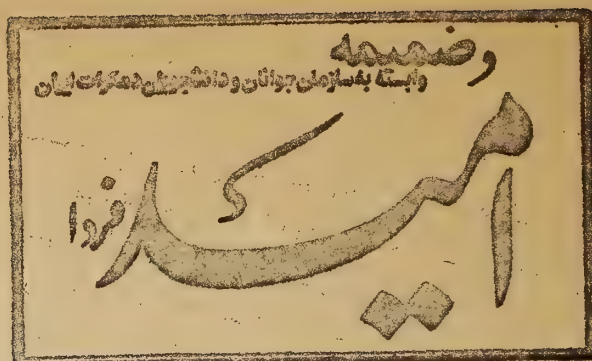 و ضمیمه
وابسته به سازمان جوانان و دانشجویان دمکرات ایران
امید
فردا